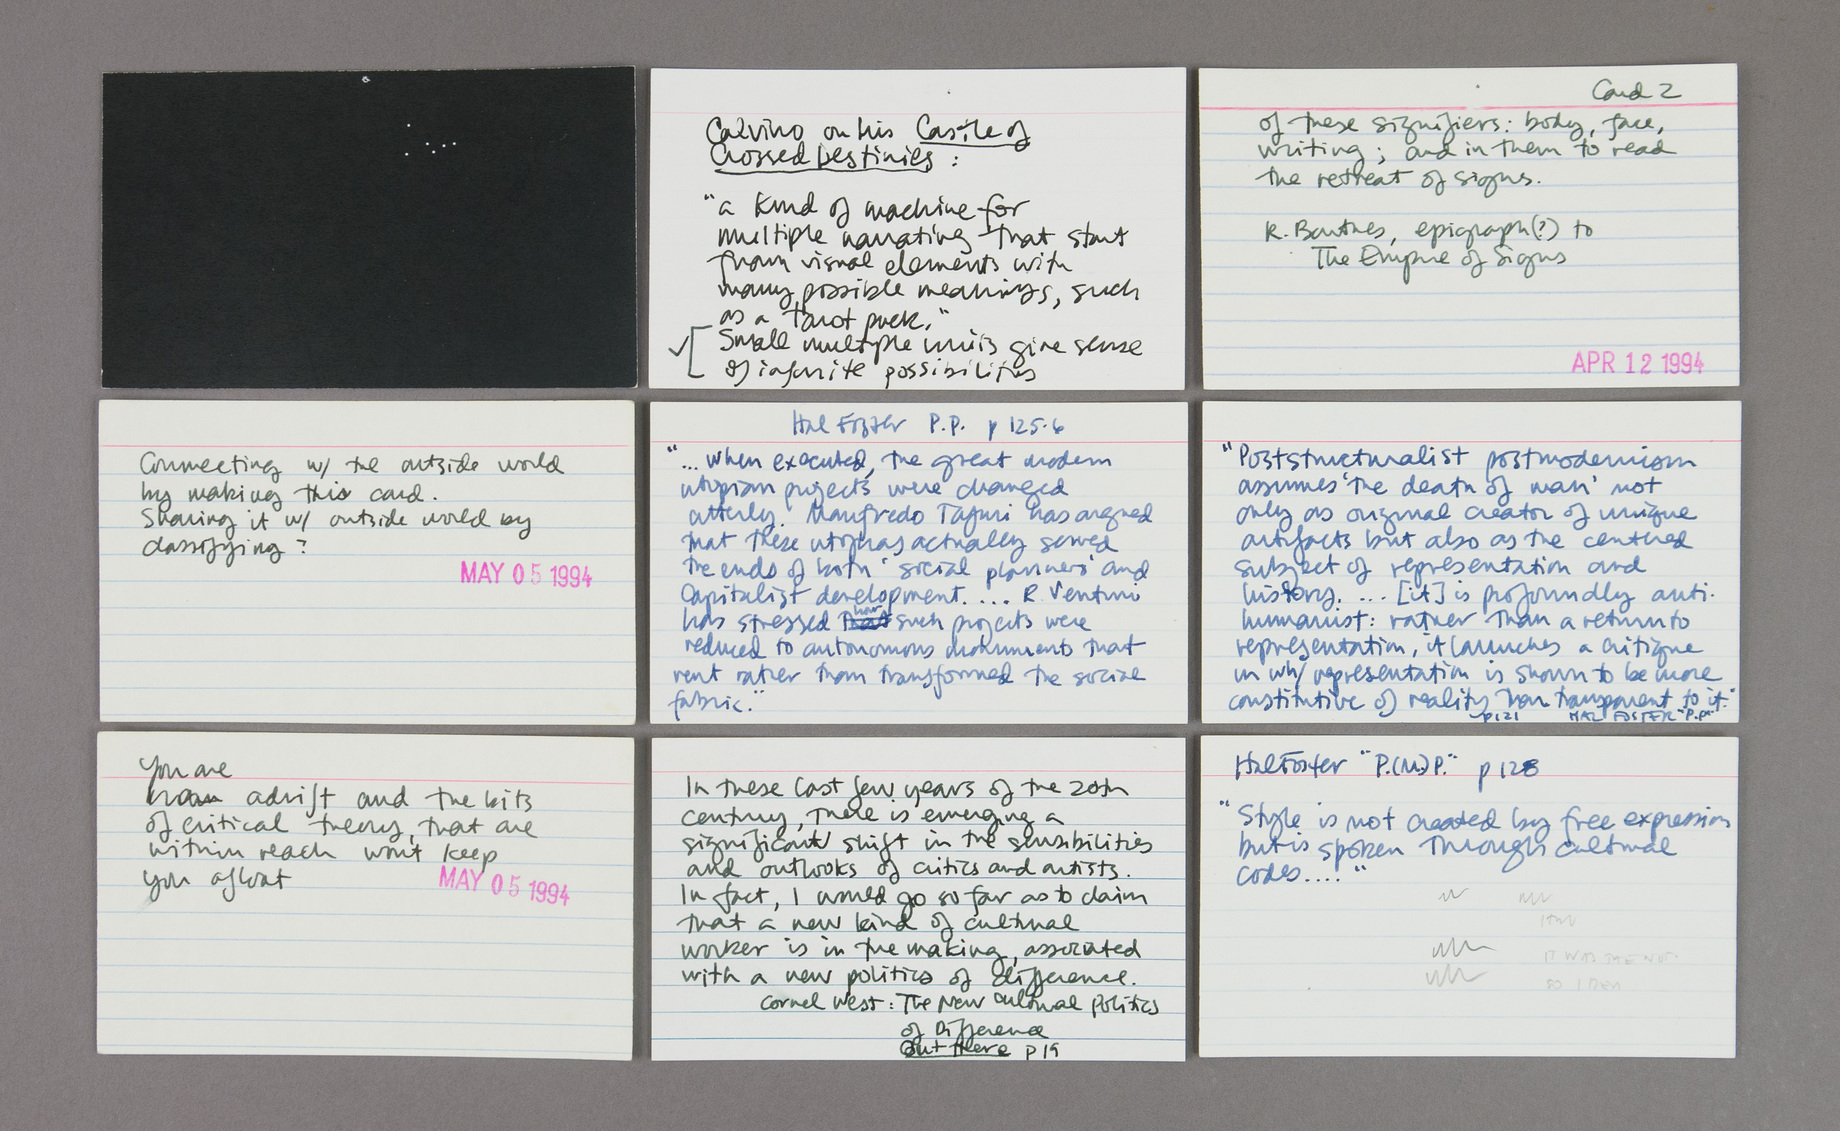 Calvino on his Castle of
Crossed Destinies :
"a kind of machine for
multiple narrating that start
from visual elements with
many possible meanings, such
as a tarot pack."
Small multiple units give sense
of infinite possibilities
Card 2
of these signifiers: body, face,
writing; and in them to read
the retreat of signs.
R. Barthes, epigraph(?) to
The Empire of Signs
APR 12 1994
Connecting w/ the outside world
by making this card.
Sharing it w/ outside world by
classifying?
MAY 05 1994
Hal Foster P.P. p 125-6
"... when executed, the great modern
utopian projects were changed
utterly. Manfredo Tafuri has argued
that these utopias actually served
the ends of both 'social planners' and
Capitalist development. ... R. Venturi
has stressed how such projects were
reduced to autonomous monuments that
rent rather than transformed the social
fabric."
"Poststructuralist postmodernism
assumes 'the death of man' not
only as original creator of unique
artifacts but also as the centered
subject of representation and
history. ... [it] is profoundly anti-
humanist: rather than a return to
representation, it launches a critique
in wh/ representation is shown to be more
constitutive of reality than transparent to it."
p121 HAL FOSTER "P.P."
You are
adrift and the bits
of critical theory, that are
within reach wont keep
you afloat
MAY 05 1994
In these last few years of the 20th
century, there is emerging a
significant shift in the sensibilities
and outlooks of critics and artists.
In fact, I would go so far as to claim
that a new kind of cultural
worker is in the making, associated
with a new politics of difference.
Cornel West: The New Cultural Politics
of Difference
Out There p 19
Hal Foster "P.(M)P." p 128
"Style is not created by free expression
but is spoken through cultural
codes...."
IT WAS THE
SO I